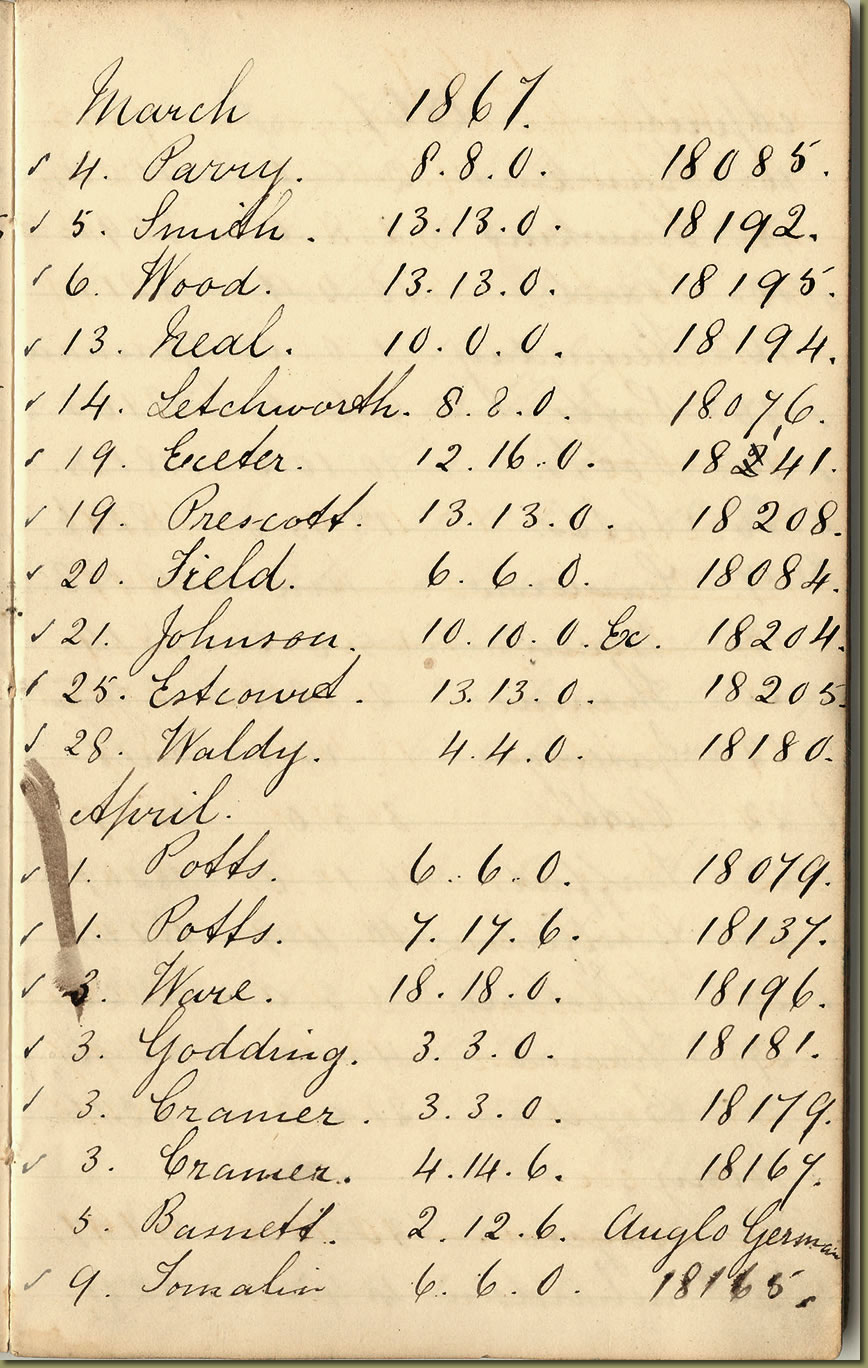 March 1867.
✓ 4. Parry. 8.8.0. 18085.
✓ 5. Smith. 13.13.0. 18192.
✓ 6. Wood. 13.13.0. 18195.
✓ 13. Neal. 10.0.0. 18194.
✓ 14. Letchworth. 8.8.0. 18076.
✓ 19. Exeter. 12.16.0. 18241.
✓ 19. Prescott. 13.13.0. 18208.
✓ 20. Field. 6.6.0. 18084.
✓ 21. Johnson. 10.10.0. Ex. 18204.
✓ 25. Estcourt. 13.13.0. 18205.
✓ 28. Waldy. 4.4.0. 18180.
April.
✓ 1. Potts. 6.6.0. 18079.
✓ 1. Potts. 7.17.6. 18137.
✓ 3. Ware. 18.18.0. 18196.
✓ 3. Godding. 3.3.0. 18181.
✓ 3. Cramer. 3.3.0. 18179.
✓ 3. Cramer. 4.14.6. 18167.
5. Basnett. 2.12.6. Anglo German
✓ 9. Tomalin 6.6.0. 18165.